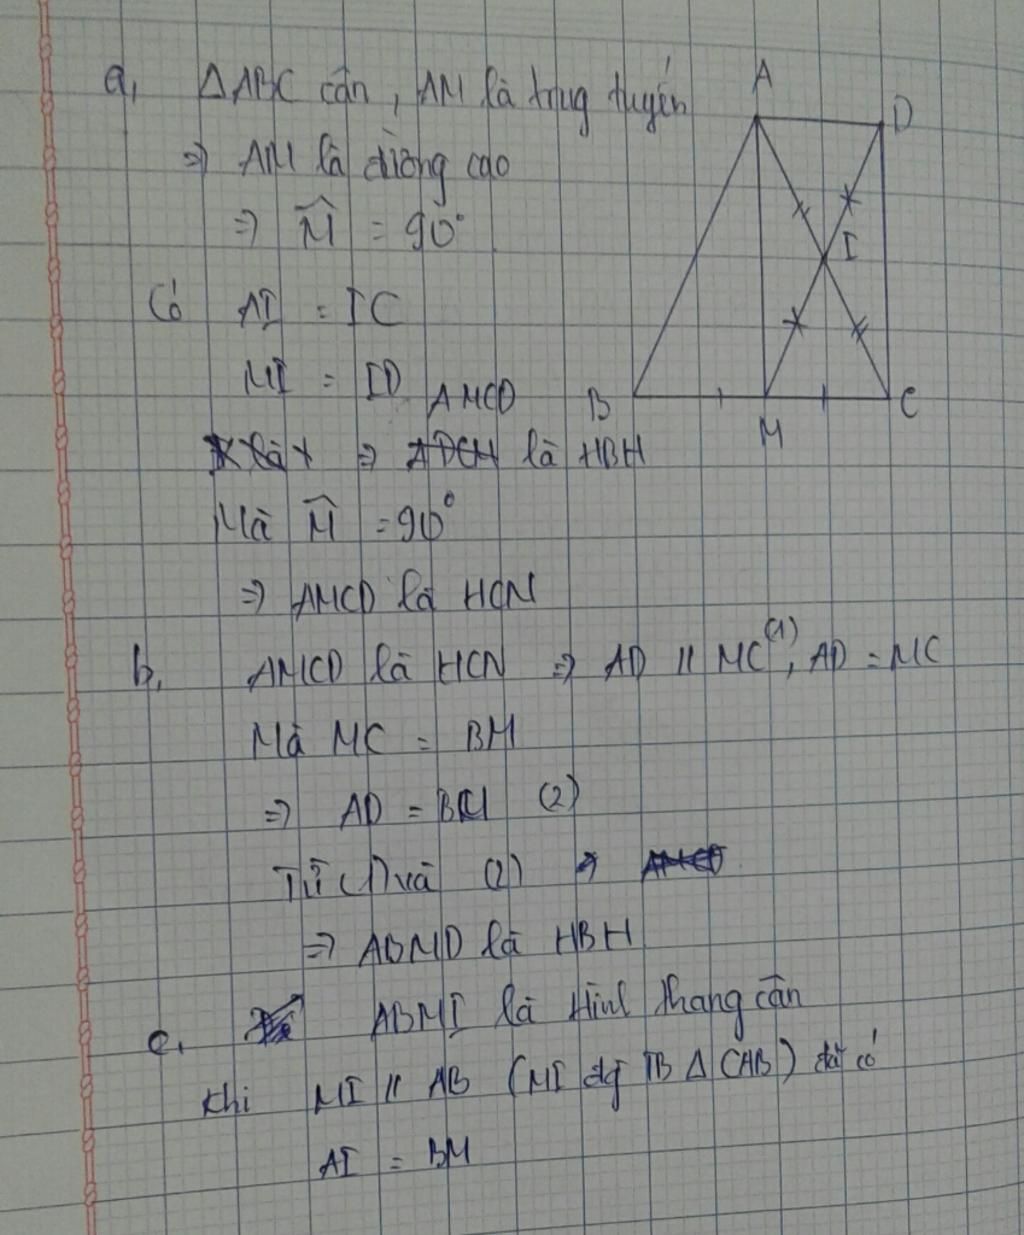 a, ΔABC cân, AM là trung tuyến
⇒ AM là đường cao
⇒ M̂ = 90°
Có AI = IC
MI = ID
AMCD
⇒ là HBH
Mà M̂ = 90°
⇒ AMCD là HCN
b, AMCD là HCN ⇒ AD // MC (1), AD = MC
Mà MC = BM
⇒ AD = BM (2)
Từ (1) và (2) ⇒
⇒ ABMD là HBH
c, ABMI là Hình thang cân
khi MI // AB (MI đg TB Δ CAB) đã có
AI = BM
A
D
I
B
M
C